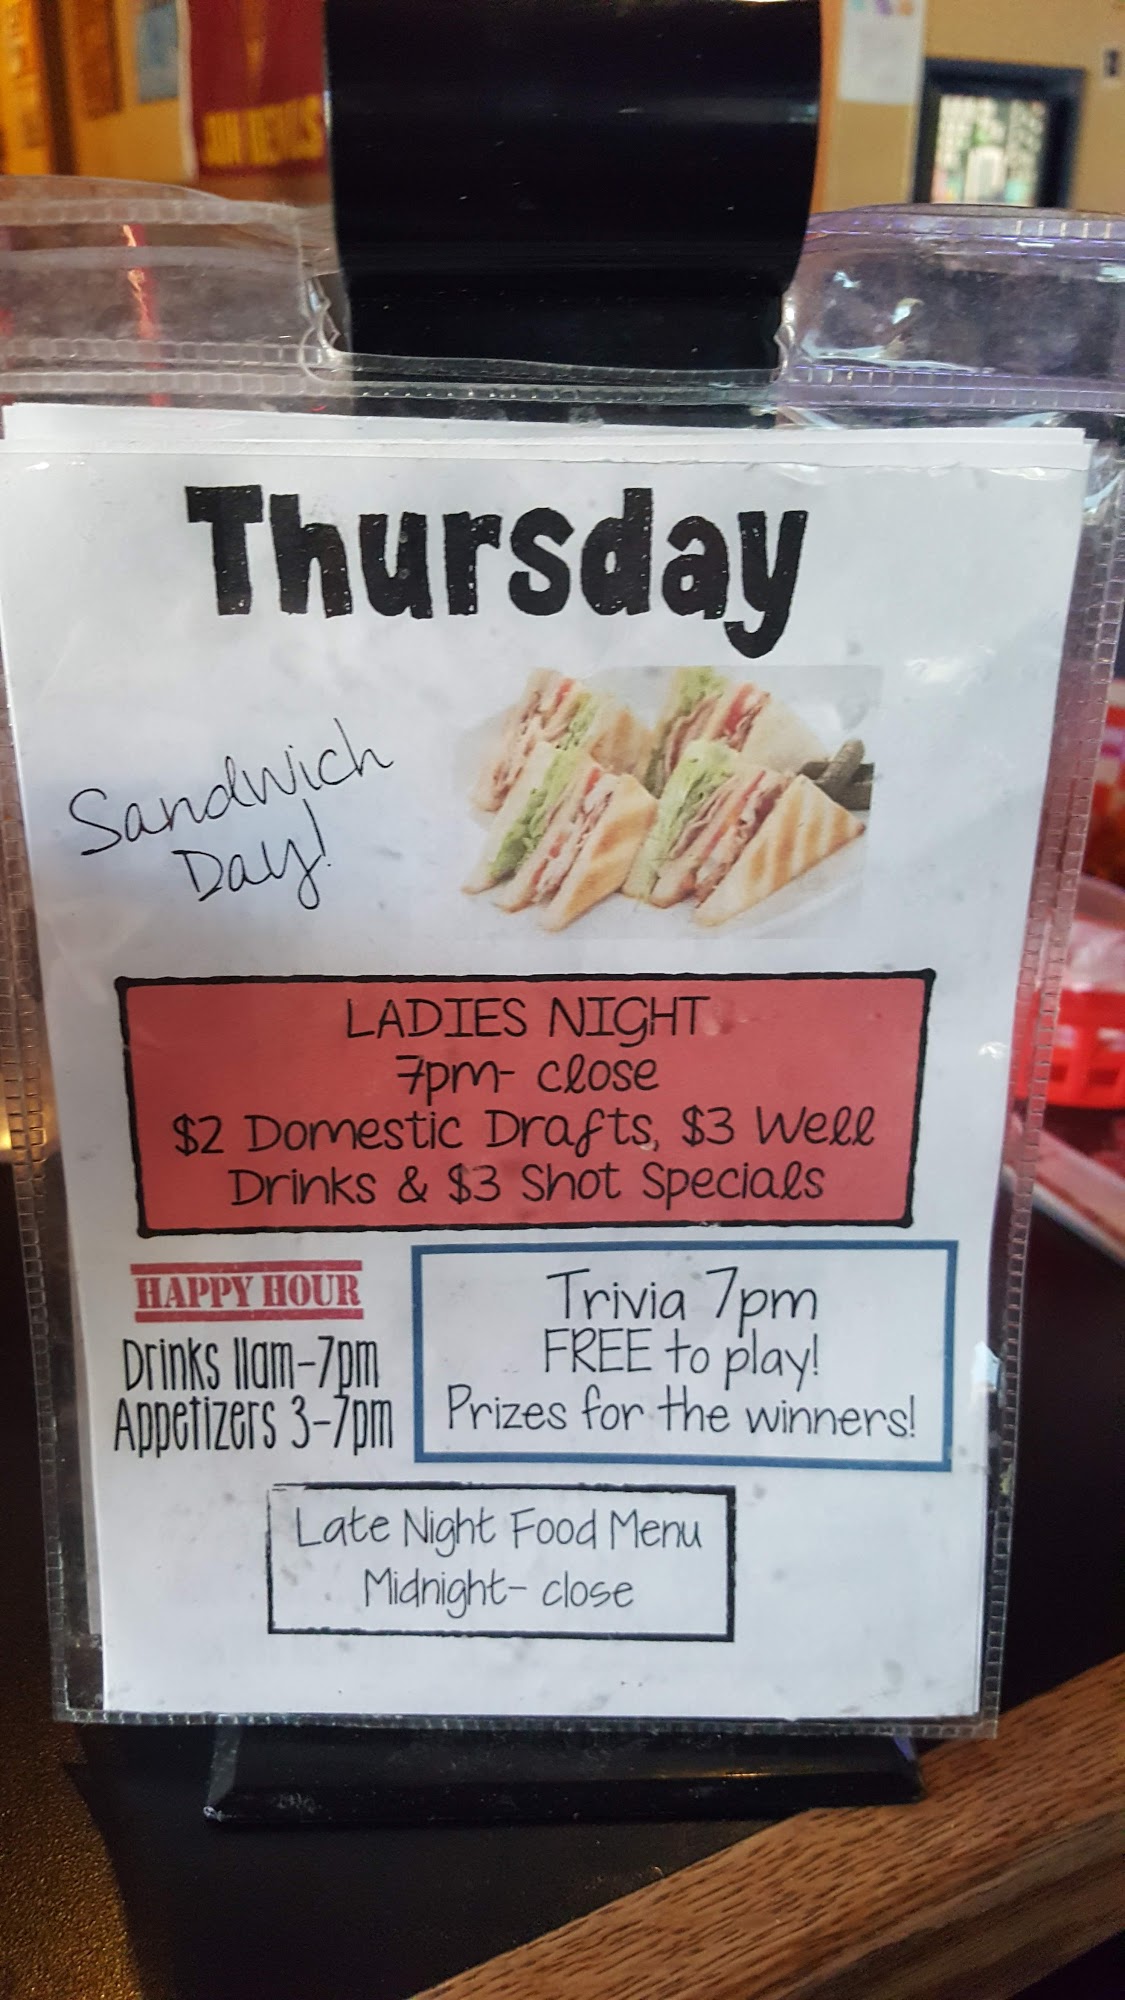 SUN DEVILS
Thursday
Sandwich
Day!
LADIES NIGHT
7pm- close
$2 Domestic Drafts, $3 Well
Drinks & $3 Shot Specials
HAPPY HOUR
Drinks 11am-7pm
Appetizers 3-7pm
Trivia 7pm
FREE to play!
Prizes for the winners!
Late Night Food Menu
Midnight- close